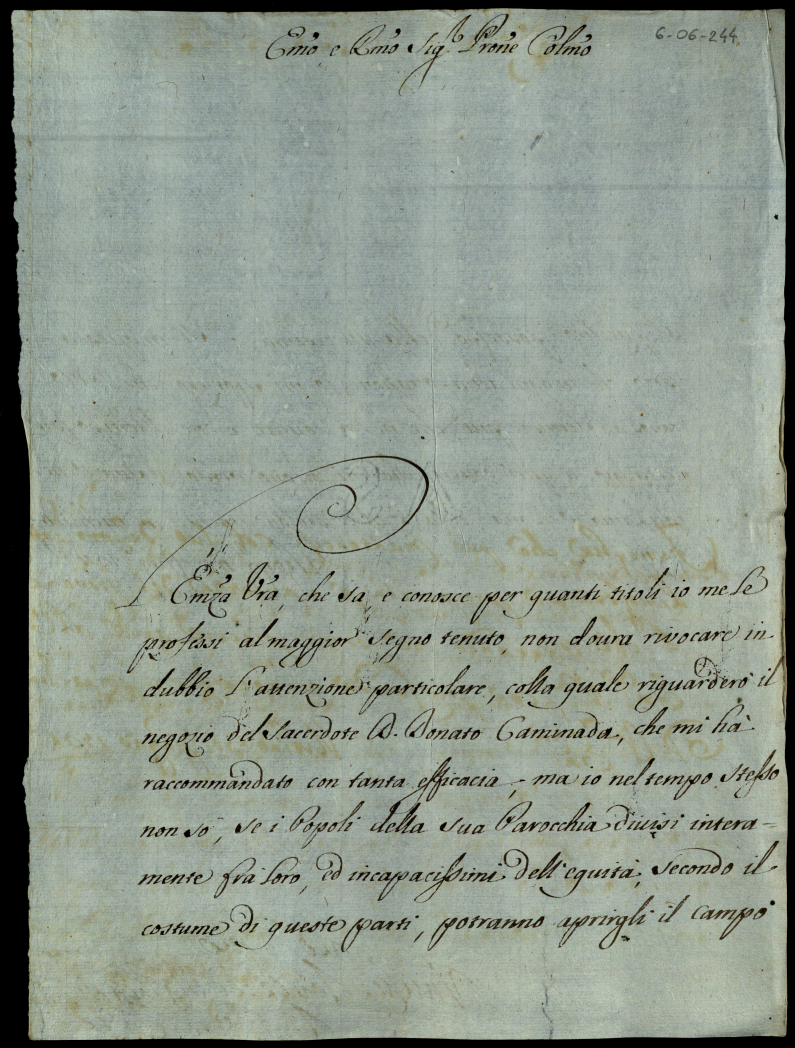 6-06-244
Emo e Rmo Sigr Prone Colmo
L'Emza Vra, che sa, e conosce per quanti titoli io me le
professi al maggior segno tenuto, non dovra rivocare in
dubbio l'attenzione particolare, colla quale riguarderò il
negozio del Sacerdote D. Donato Caminada, che mi hà
raccommandato con tanta efficacia; ma io nel tempo stesso
non sò, se i Popoli della sua Parocchia divisi intera=
mente fra loro, ed incapacissimi dell'equità, secondo il
costume di queste parti, potranno aprirgli il campo